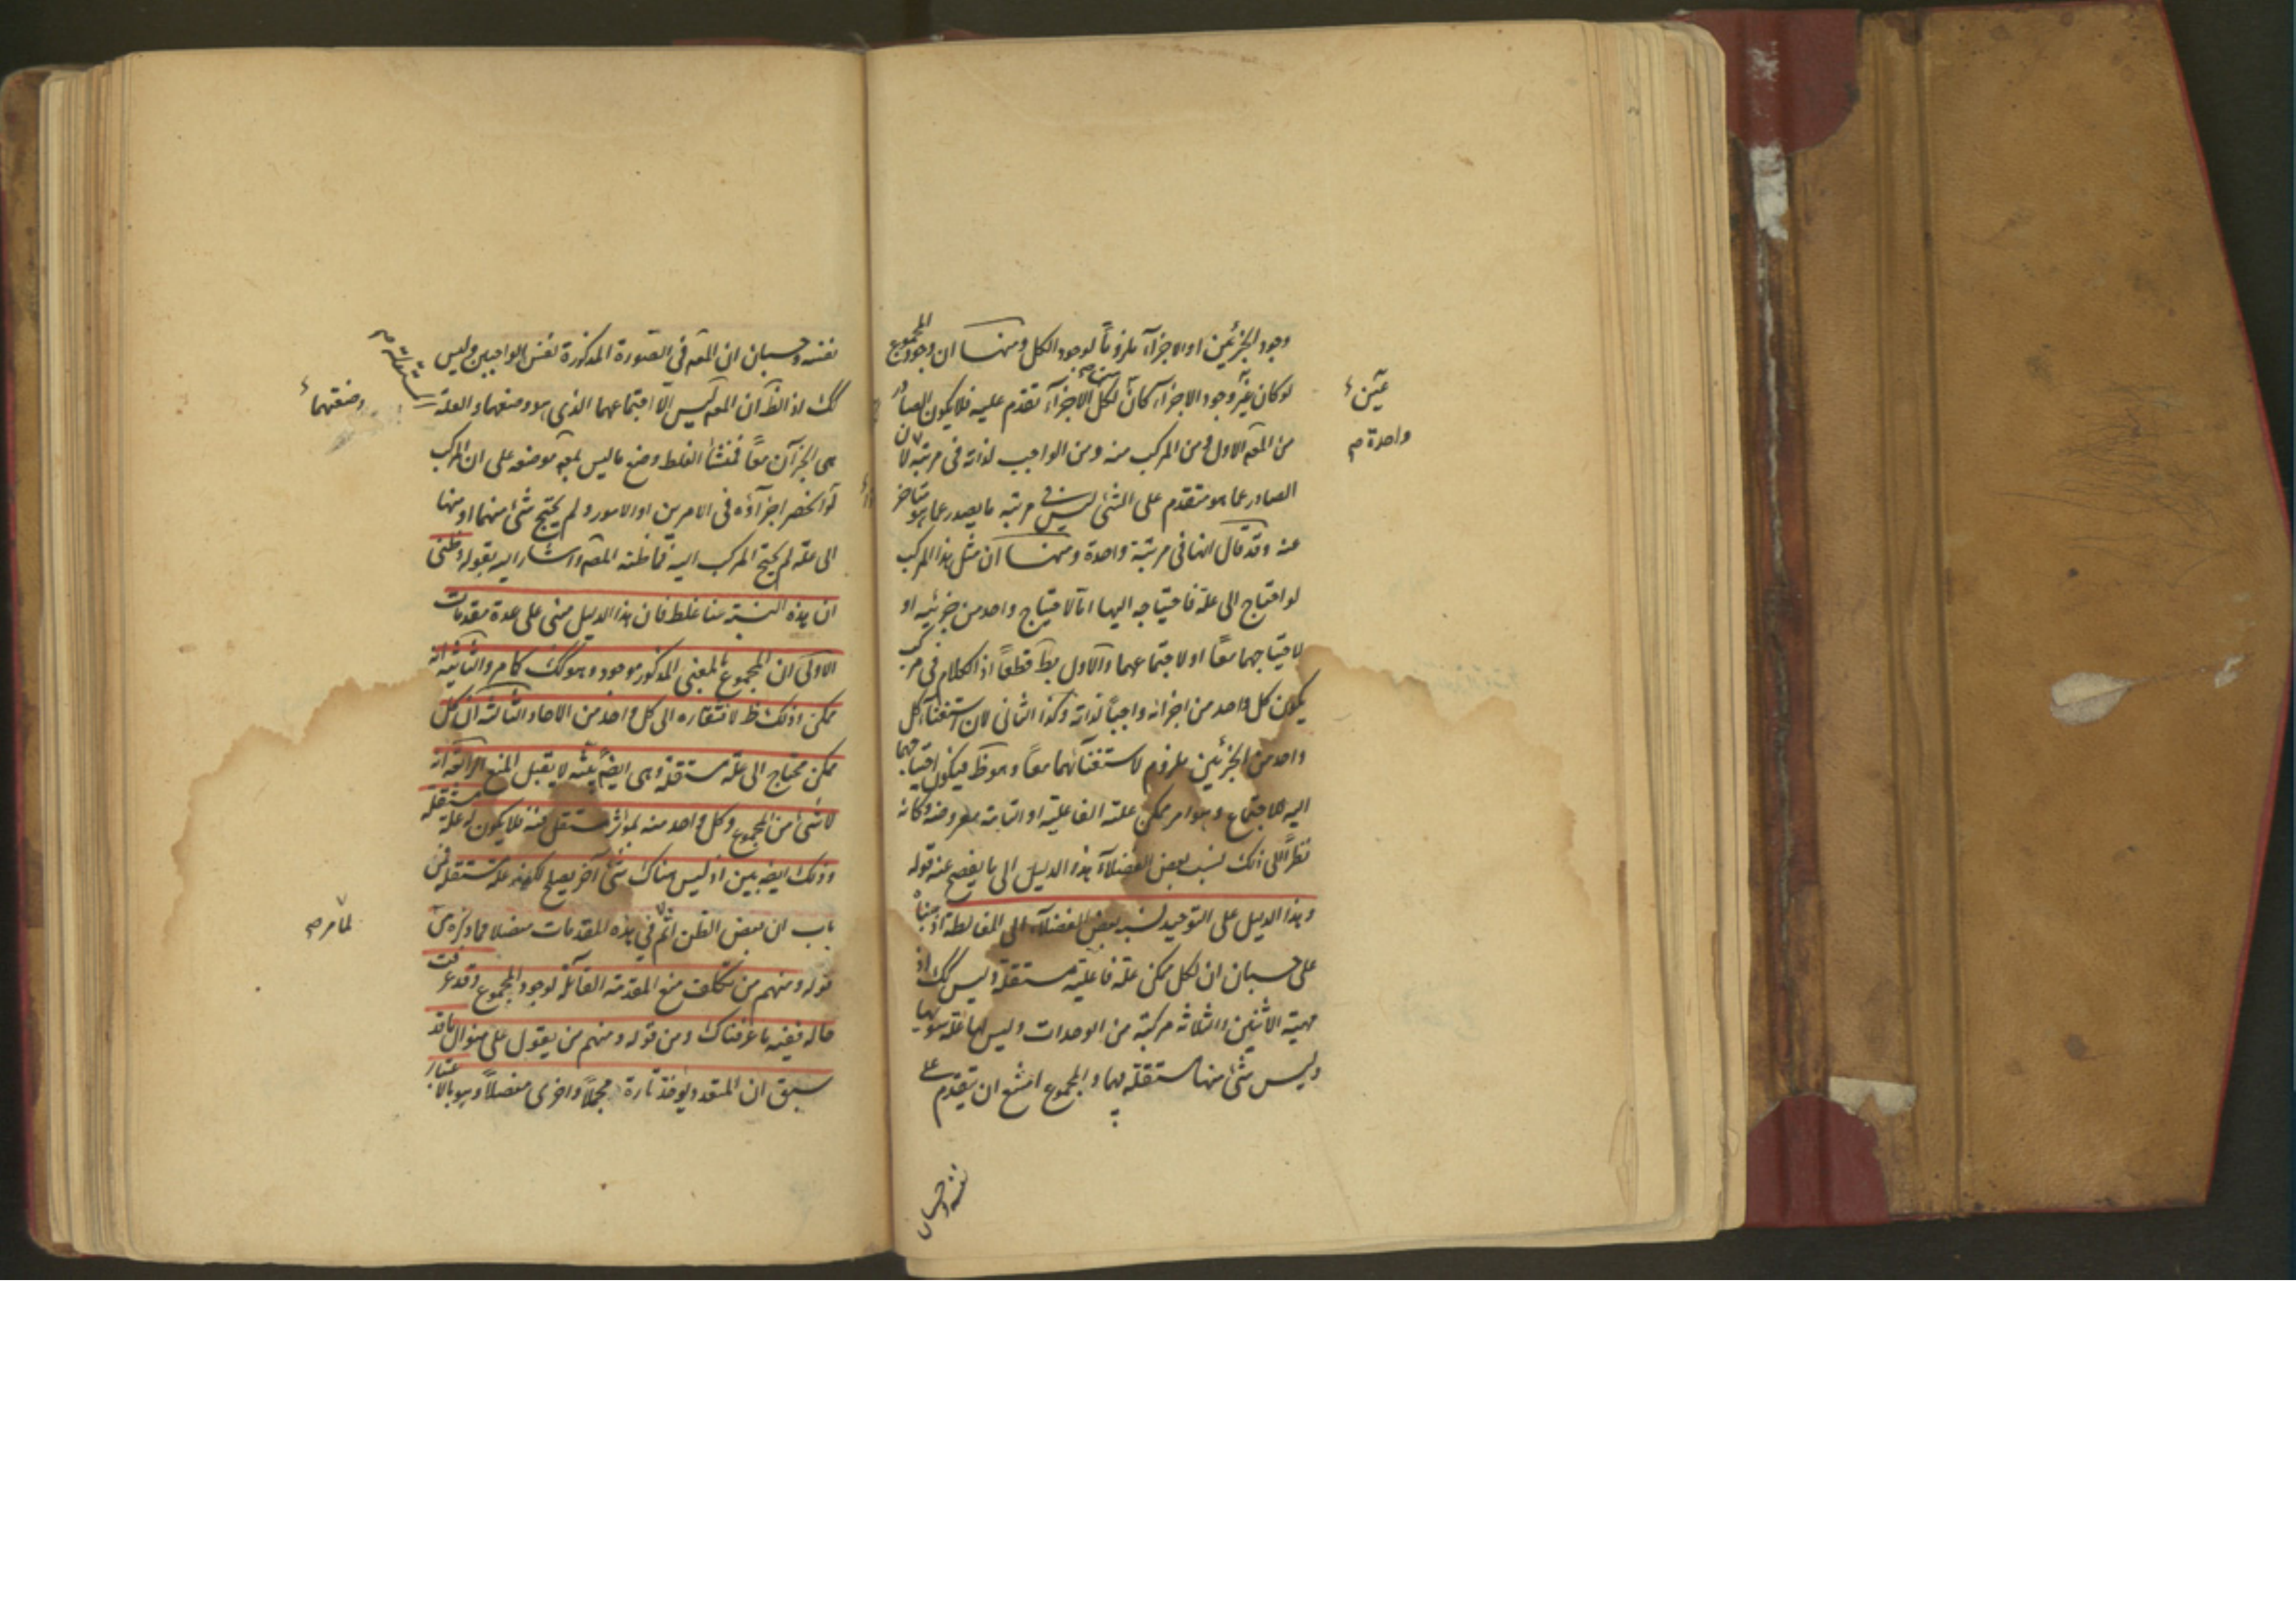 وجود الجزئين او الاجزآء ملزوماً لوجود الكل ومنها ان وجود المجموع
لو كان غير وجود الاجزآء كان لكل الاجزآء تقدم عليه فلا يكون الصادر
عين
من المعه الاول ومن المركب منه ومن الواجب لذاته فى مرتبة لان
واحدة صح
الصادر عما هو متقدم على الشئ ليس فى مرتبة ما يصدر عما هو متاخر
عنه وقد قال انها فى مرتبة واحدة ومنها ان مثل هذا المركب
لو احتاج الى علة فاحتياجه اليها اما لاحتياج واحد من جزئيه او
لاحتياجهما معاً او لاجتماعهما والاول بط قطعاً اذ الكلام فى مركب
يكون كل واحد من اجزائه واجباً لذاته وكذا الثانى لان استغنآء كل
واحد من الجزئين ملزوم لاستغنائهما معاً وهو ظ فيكون احتياجهما
اليه للاجتماع وهو امر ممكن علته الفاعلية او التامة معروضه وكانه
نظراً الى ذلك نسب بعض الفضلآء هذا الدليل الى ما يفصح عنه قوله
وهذا الدليل على التوحيد نسبه بعض الفضلآء الى المغالطة اذ مبناه
على حسبان ان لكل ممكن علة فاعلية مستقلة وليس كك اذ
مهية الاثنين والثلاثة مركبة من الوحدات وليس لها علة سويها
وليس شئ منها مستقلة بها والمجموع امتنع ان يتقدم على
نفسه وحسبان
نفسه وحسبان ان المعه فى الصورة المذكورة نفس الواجبين وليس
كك اذ الظ ان المعه ليس الا اجتماعهما الذى هو وصفهما والعلة
وصفتهما
هى الجزآن معاً فمنشأ الغلط وضع ما ليس بمعه موضعه على ان المركب
لو انحصر اجزآؤه فى الامرين او الامور ولم يحتج شئ منهما او منها
الى علة لم يحتج المركب اليه فما ظنه المعه واشار اليه بقوله وظنى
ان هذه النسبة منا غلط فان هذا الدليل مبنى على عدة مقدمات
الاولى ان المجموع بالمعنى المذكور موجود وهو كك كما مر والثانية انه
ممكن وذلك ظ لافتقاره الى كل واحد من الآحاد الثالثة ان كل
ممكن محتاج الى علة مستقلة وهى ايضاً بينة لا يقبل المنع الرابعة انه
لا شئ من المجموع وكل واحد منه بمؤثر مستقل فيه فلا يكون له علة مستقلة
وذلك ايضاً بين اذ ليس هناك شئ آخر يصلح لكونه علة مستقلة فمن
باب ان بعض الظن اثم فى هذه المقدمات مفصلا
لما مر صح
قوله ومنهم من تكلف منع المقدمة القائلة لوجود المجموع وقد عرفت
حاله ففيه ما عرفناك ومن قوله ومنهم من يقول على منوال ما قد
سبق ان المتعدد يؤخذ تارة مجملاً واخرى مفصلاً وهو بالاعتبار